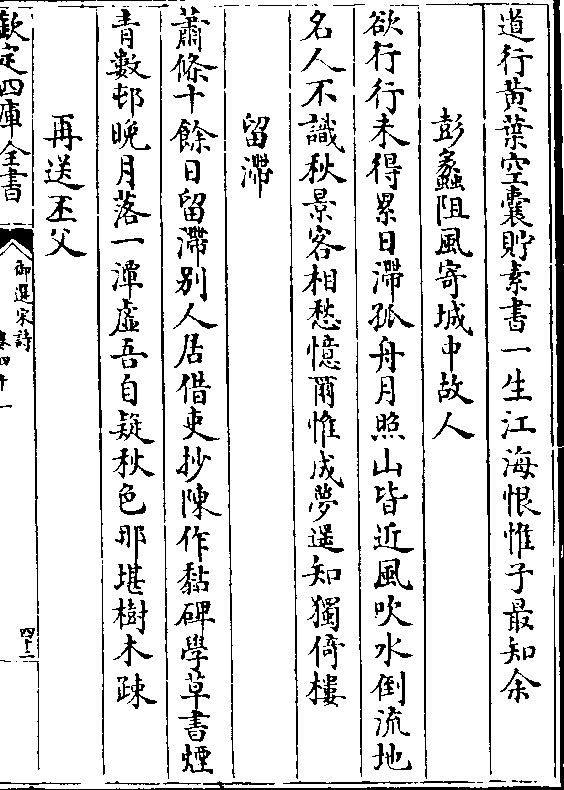 道行黃葉空囊貯素書一生江海恨惟子最知余
彭蠡阻風寄城中故人
欲行行未得累日滯孤舟月照山皆近風吹水倒流地
名人不識秋景客相愁憶爾惟成夢遥知獨倚樓
留滯
蕭條十餘日留滯别人居借吏抄陳作黏碑學草書煙
青數邨晚月落一潭虛吾自疑秋色那堪樹木踈
再送丕父
欽定四庫全書
御選宋詩
卷四十一
四十二